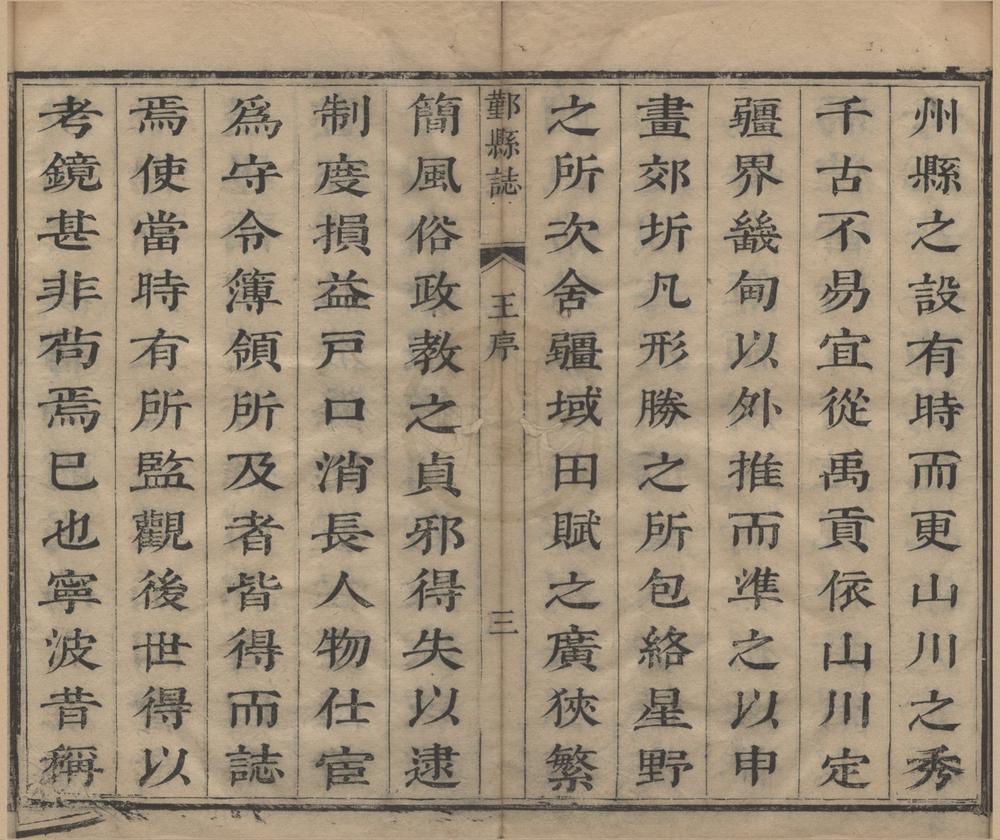 州縣之設有時而更山川之秀
千古不易宜從禹貢依山川定
疆界畿甸以外推而準之以申
畫郊圻凡形勝之所包絡星野
之所次舍疆域田賦之廣狹繁
鄞縣誌
王序
三
簡風俗政教之貞邪得失以逮
制度損益戸口消長人物仕宦
為守令簿領所及者皆得而誌
焉使當時有所監觀後世得以
考鏡甚非茍焉已也寧波昔稱